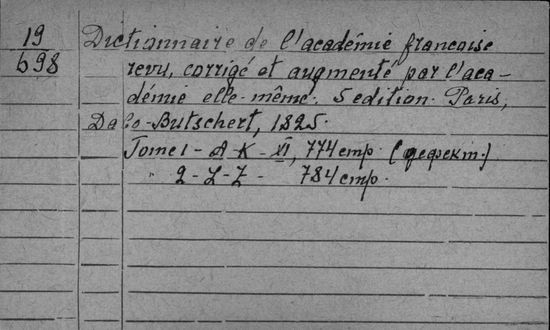 19
698
Dictionnaire de l'académie francoise
revu, corrigé et augmenté par l'aca-
démie elle-même. 5 edition. Paris,
Dalo-Butschert, 1825.
Tome 1 - A-K - XI, 774 стр. (дефект.)
" 2 - L-Z - 784 стр.